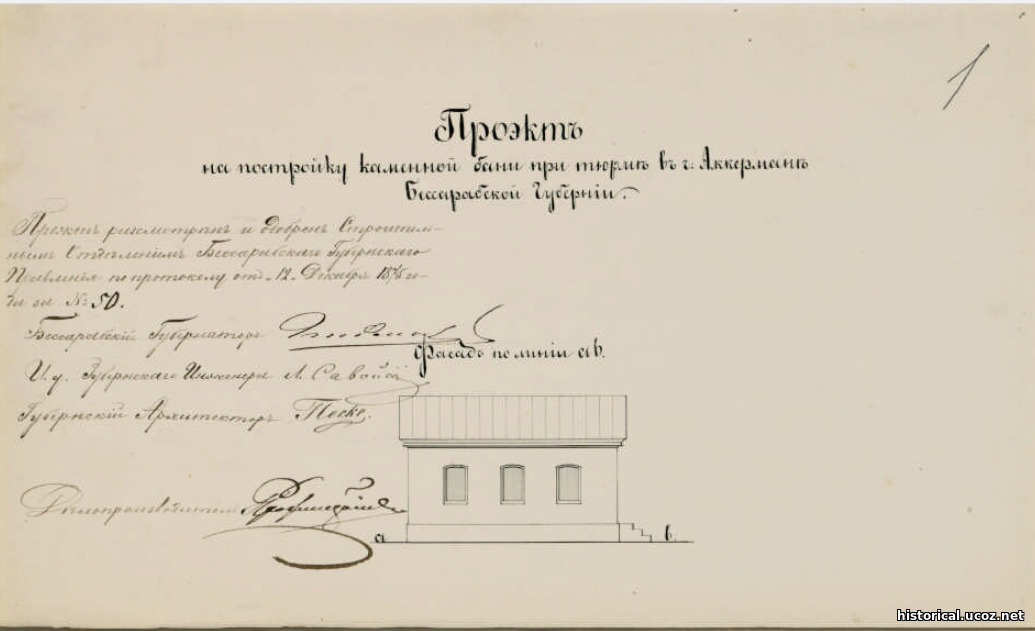 1
Проэктъ
на постройку каменной бани при тюрмѣ въ г: Аккерманѣ
Бессарабской Губерніи.
Проэктъ разсмотрѣнъ и одобренъ Строитель-
нымъ Отдѣленіемъ Бессарабскаго Губернскаго
Правленія по протоколу отъ 12 Декабря го-
да за № 50.
Бессарабскій Губернаторъ
Фасадъ по линіи ab.
И. д. Губернскаго Инженера Л. Савойскій
Губернскій Архитекторъ Песке.
Дѣлопроизводитель
a b.
historical.ucoz.net